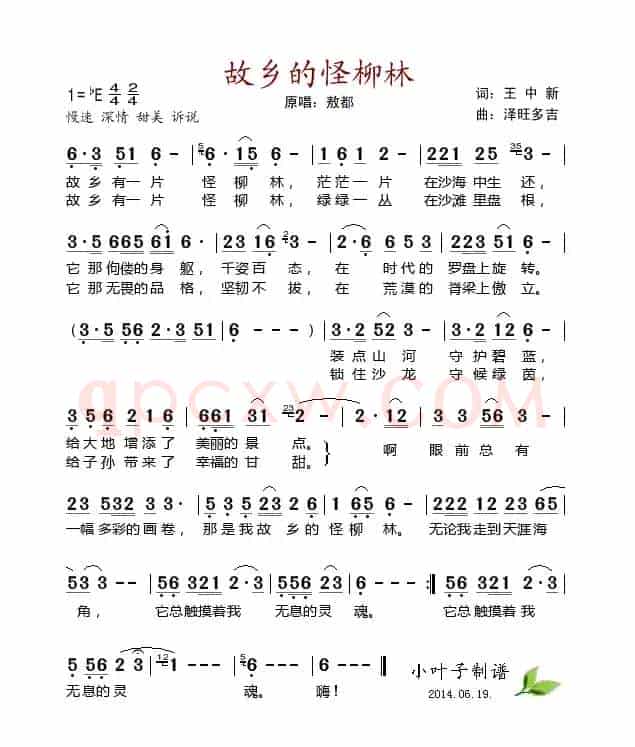 故乡的怪柳林
1=♭E 4/4 2/4
原唱：敖都
词：王中新
慢速 深情 甜美 诉说
曲：泽旺多吉
6·3 51 6 - | 6· 15 6 - | 1 6 1 - | 221 25 3 - |
故乡有一片 怪柳林， 茫茫一片 在沙海中生还，
故乡有一片 怪柳林， 绿绿一丛 在沙滩里盘根，
3·5 665 61 5· | 23 16 3 - | 2·6 6 5 3 | 223 51 6 - |
它那佝偻的身躯，千姿百态，在 时代的 罗盘上旋转。
它那无畏的品格，坚韧不拔，在 荒漠的 脊梁上傲立。
(3·5 56 2·3 51 | 6 - - - ) | 3·2 52 3 - | 3·2 12 6 - |
装点山河 守护碧蓝，
锁住沙龙 守候绿茵，
3 5 6 2 1 6 | 661 31 2 - | 2·12 | 3 3 56 3 |
给大地增添了 美丽的景点。 啊 眼前总有
给子孙带来了 幸福的甘甜。
23 532 3 3 | 5 3 5 23 2 6 | 1 65 6 - | 222 12 23 65 |
一幅多彩的画卷，那是我故乡的怪柳林。无论我走到天涯海
53 3 - - | 56 321 2·3 | 5556 23 | 6 - - :‖ 56 321 2·3 |
角， 它总触摸着我 无息的灵 魂。 它总触摸着我
5 56 2 3 | 1 - - - | 6 - - - | 6 - - - ‖
无息的灵 魂。嗨！
小叶子制谱
2014.06.19.
qpcxw.com